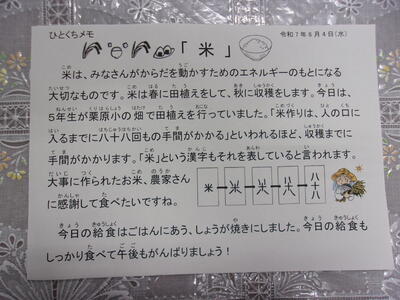 ひとくちメモ
令和7年6月4日(水)
「米」
米は、みなさんがからだを動かすためのエネルギーのもとになる
大切なものです。米は春に田植えをして、秋に収穫をします。今日は、
5年生が栗原小の畑で田植えを行っていました。「米作りは、人の口に
入るまでに八十八回もの手間がかかる」といわれるほど、収穫までに
手間がかかります。「米」という漢字もそれを表していると言われます。
大事に作られたお米、農家さん
に感謝して食べたいですね。
米 米 八十八
今日の給食はごはんにあう、しょうが焼きにしました。今日の給食も
しっかり食べて午後もがんばりましょう!